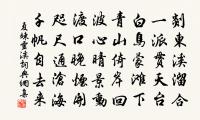 剡東溪溜合
一派貫天台
白鳥蒙灘下
青山倚岸回
波心晴景動
渡口晚開
咫尺通滄海
千帆自去來
夏竦溪詞典網集